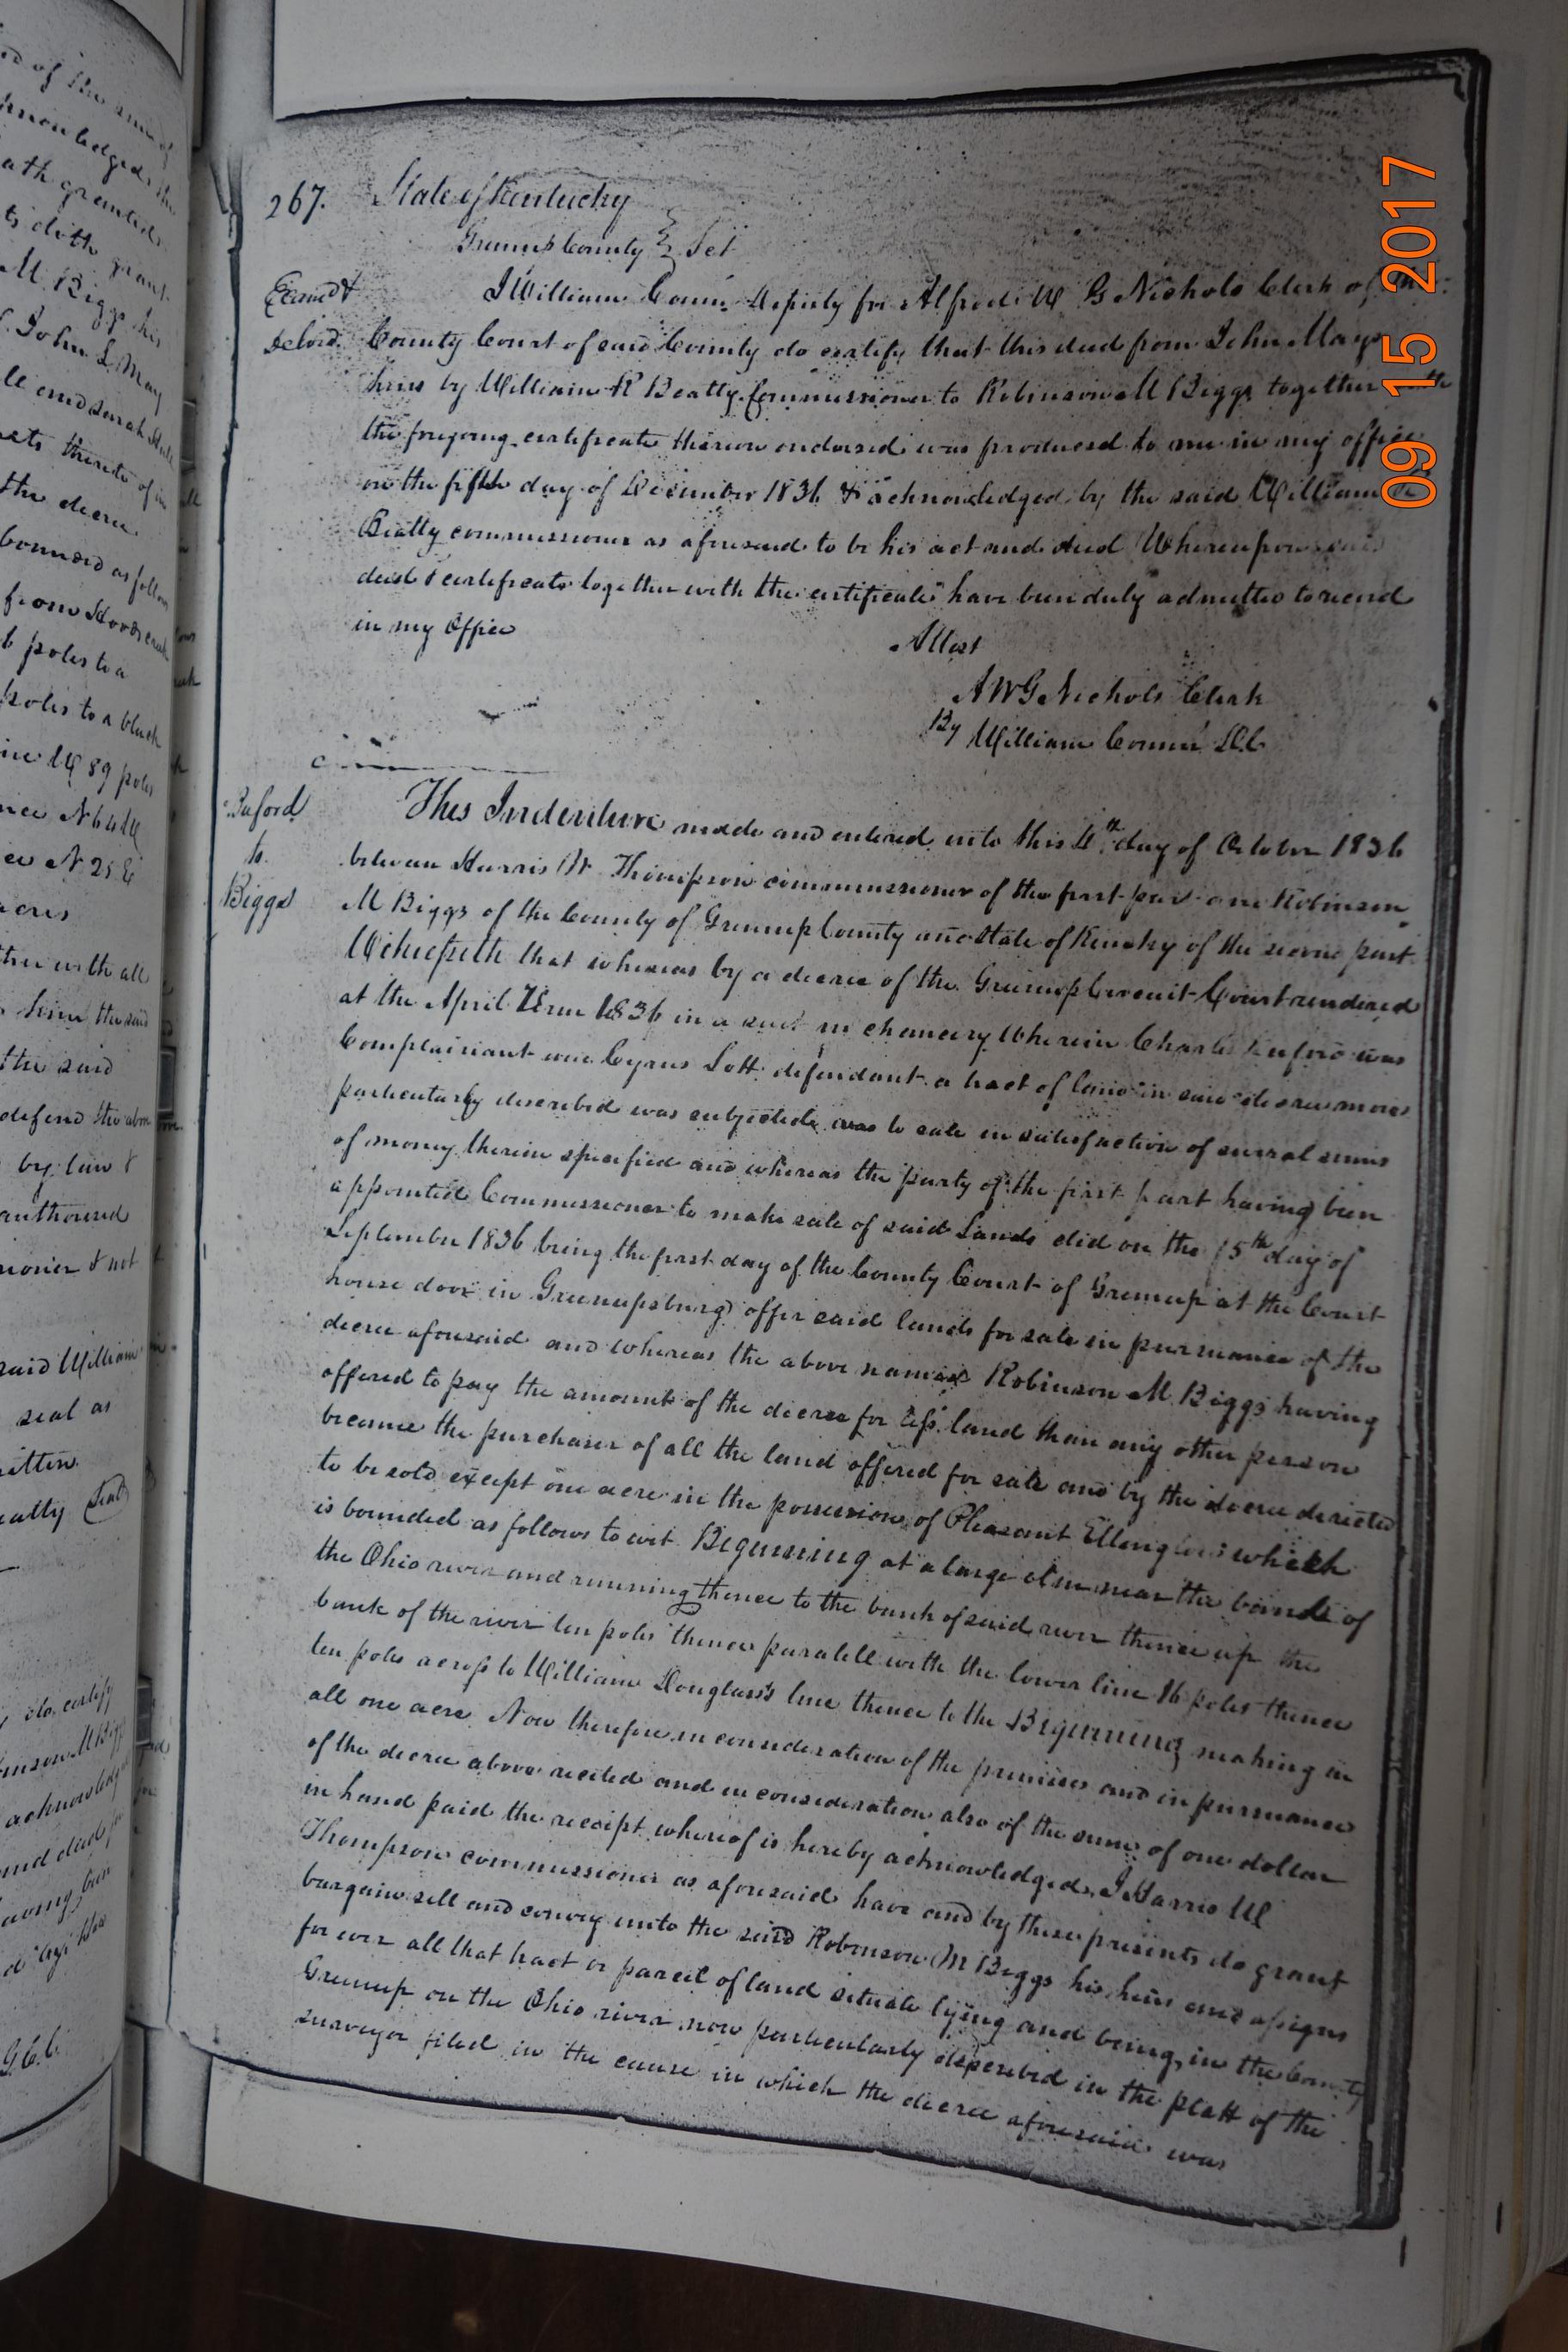 267. State of Kentucky
Greenup County } Sct
Examd &
Delivd.
I William Conn. Deputy for Alfred W G Nichols Clerk of the
County Court of said County do certify that this deed from John Mays
heirs by William R Beatty Commissioner to Robinson M Biggs together with
the foregoing certificate thereon endorsed was produced to me in my office
on the fifth day of December 1836 & acknowledged by the said William R
Beatty commissioner as aforesaid to be his act and deed Whereupon said
deed & certificate together with the certificate have been duly admitted to record
in my Office
Attest
A W G Nichols Clerk
By William Conn D.C
Buford
to
Biggs
This Indenture made and entered into this 4th day of October 1836
between Harris W Thompson commissioner of the first part and Robinson
M Biggs of the County of Greenup County and State of Kentucky of the second part
Witnesseth that whereas by a decree of the Greenup Circuit Court rendered
at the April Term 1836 in a suit in chancery Wherein Charles Buford was
Complainant and Cyrus Lott defendant a tract of land in said decree more
particularly described was subjected to sale in satisfaction of several sums
of money therein specified and whereas the party of the first part having been
appointed Commissioner to make sale of said Lands did on the 5th day of
September 1836 being the first day of the County Court of Greenup at the Court
house door in Greenupsburg offer said lands for sale in pursuance of the
decree aforesaid and whereas the above named Robinson M. Biggs having
offered to pay the amount of the decree for less land than any other person
became the purchaser of all the land offered for sale and by the decree directed
to be sold except one acre in the possession of Pleasant Ellington which
is bounded as follows to wit Begining at a large elm near the bank of
the Ohio river and running thence to the bank of said river thence up the
bank of the river ten poles thence paralell with the lower line 16 poles thence
ten poles across to William Douglass's line thence to the Begining making in
all one acre Now therefore in consideration of the premises and in pursuance
of the decree above recited and in consideration also of the sum of one dollar
in hand paid the receipt whereof is hereby acknowledged, I Harris W
Thompson commissioner as aforesaid have and by these presents do grant
bargain sell and convey unto the said Robinson M Biggs his heirs and assigns
for ever all that tract or parcel of land situate lying and being in the County
Greenup on the Ohio river now particularly described in the platt of the
surveyor filed in the cause in which the decree aforesaid was
09 15 2017